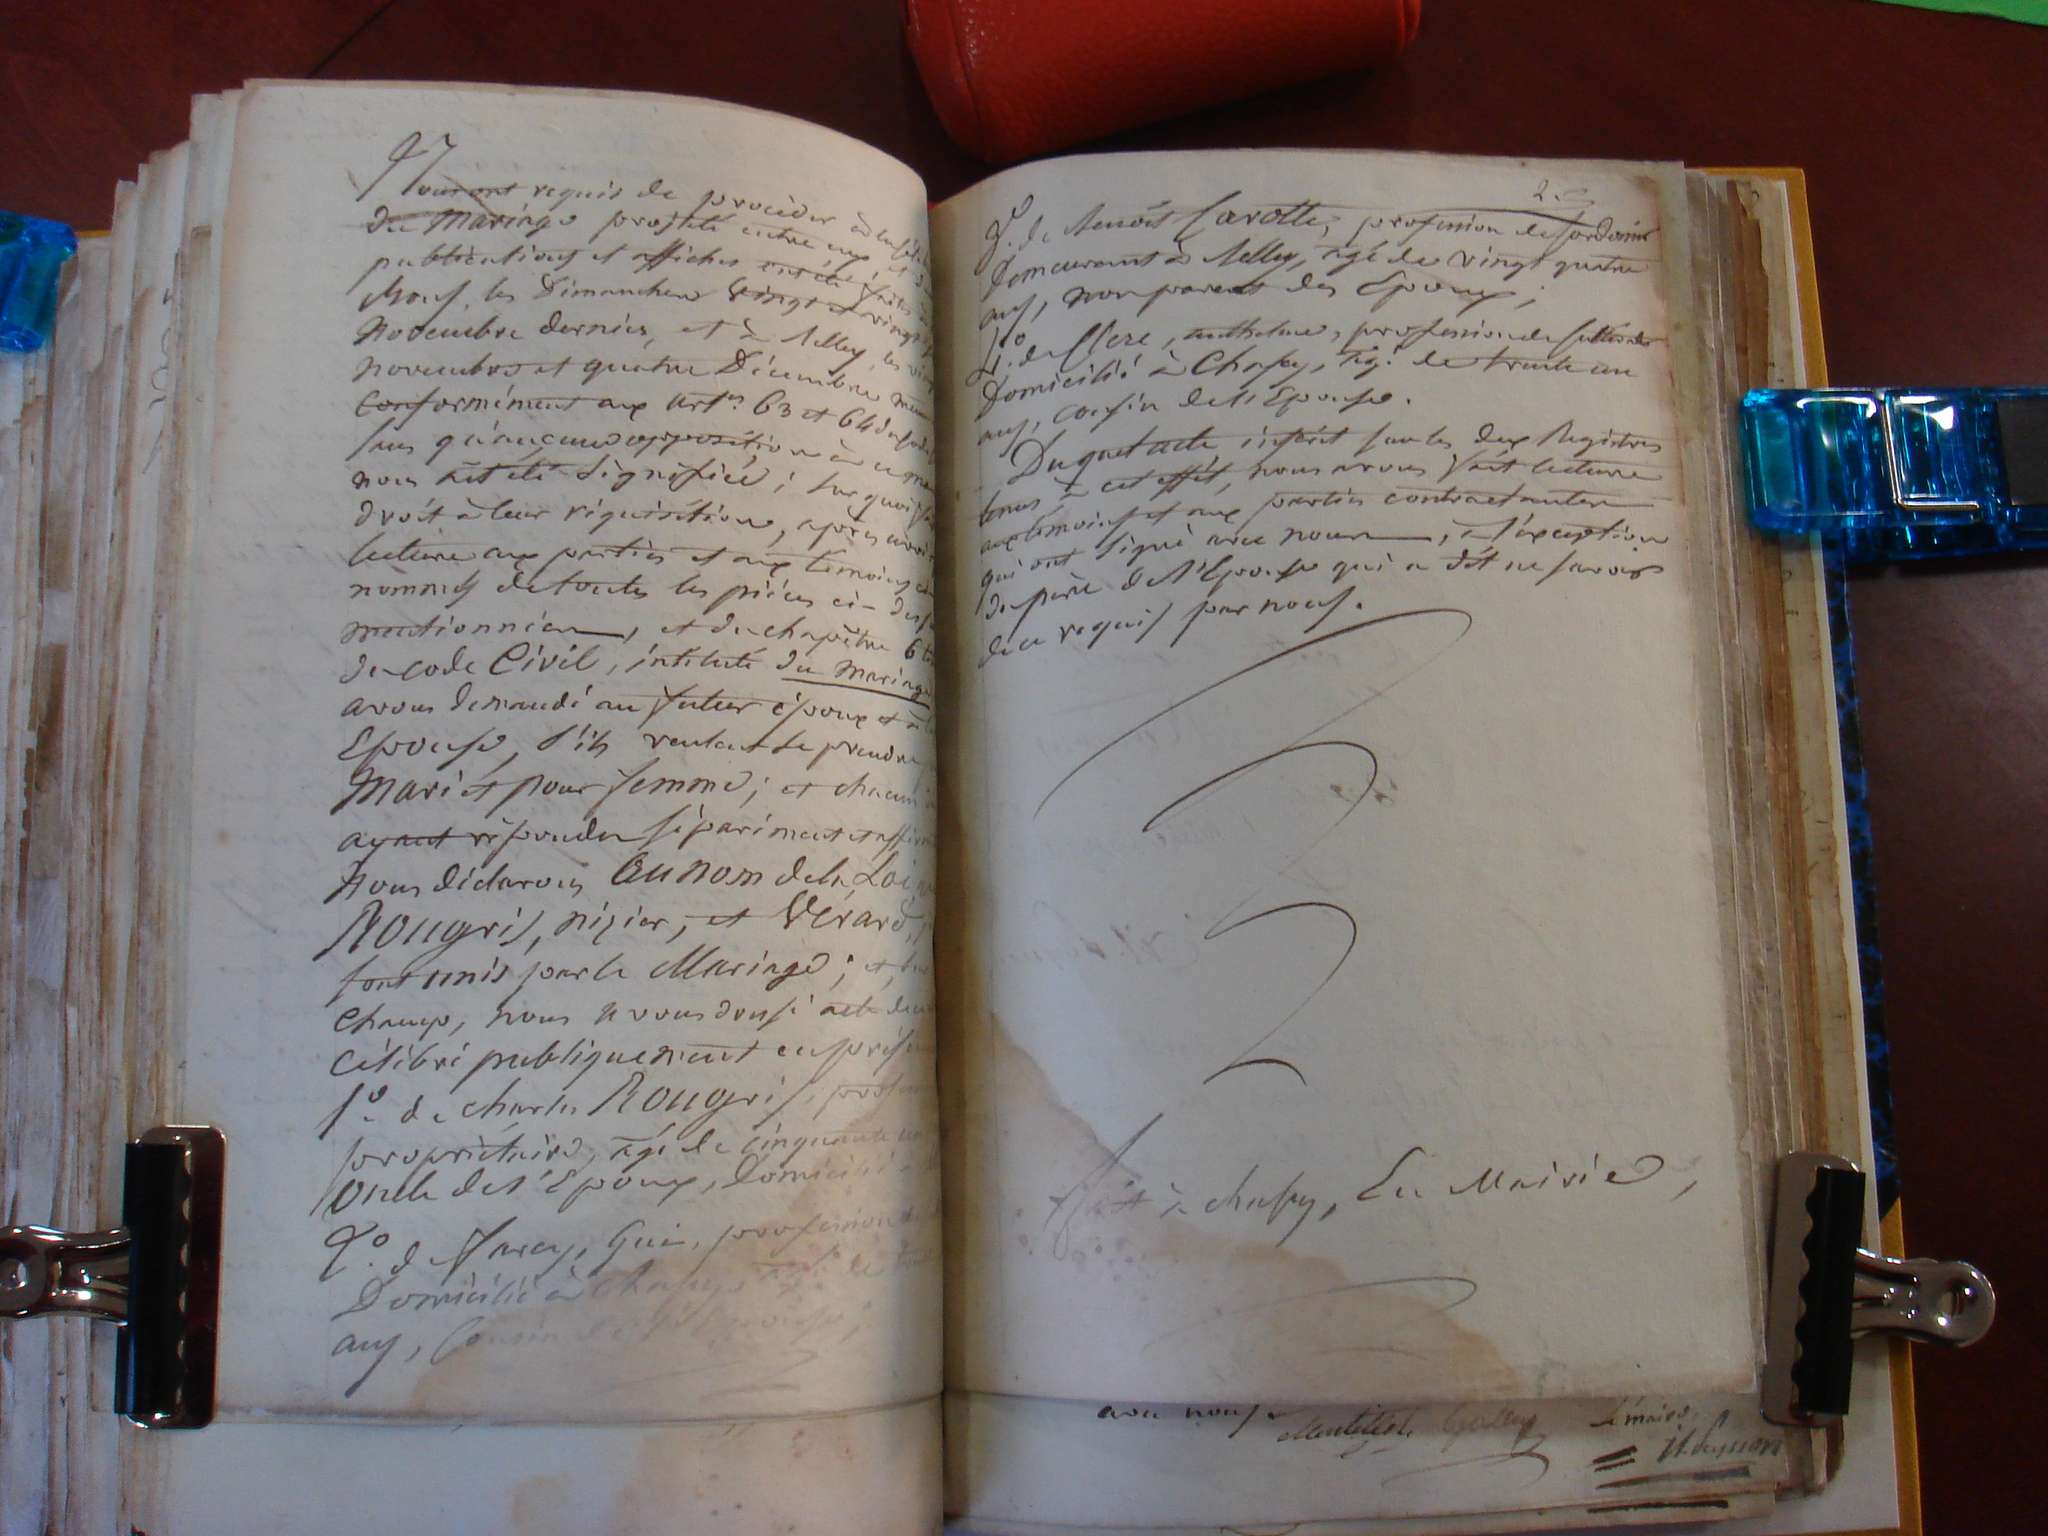 Nous ont requis de procéder à la célé
du Mariage projeté entre eux et d
publications et affiches ont été faites
nous, les Dimanches Vingt et vingt
Novembre dernier, et à Selley les vin
novembre et quatre Décembre même
Conformément aux Art.es 63 et 64 du Code
sans qu'aucune opposition à ce ma
nous ait été signifiée; sur quoi fai
droit à leur réquisition, après avoir
lecture aux parties et aux témoins ci
nommés de toutes les pièces ci-dess
mentionnées, et du chapitre 6
du code Civil, intitulé du Mariage
avons demandé au futur époux et à la
Epouse, s'ils veulent se prendre
Mari et pour femme; et chacun
ayant répondu séparément et affirm
Nous déclarons Au nom de la Loi
Rougris, nizier, et Vérard,
sont unis par le Mariage; et, sur
champ, nous avons dressé acte de
célébré publiquement en prése
1.º de charles Rougris, profes
propriétaire, âgé de cinquante
oncle de l'Epoux, domicilié
2.º de Farcy, Gui, profession de
Domicilié à Chapey, âgé de
ans, Cousin de l'Epouse;
2.
3.º de Benoît Carotte, profession de Cordonnier
Demeurant à Selley, âgé de vingt quatre
ans, non parent des Epoux;
4.º de Clere, anthelme, profession de
Domicilié à Chapey, âgé de trente un
ans, cousin de l'Epouse.
Duquel acte, inscrit sur les deux Registres
tenus à cet effet, nous avons fait lecture
aux témoins et aux parties contractantes
qui ont signé avec nous, à l'exception
du père de l'Epouse qui a dit ne savoir
de ce requis par nous.
Fait à chapey, En Mairie,
avec nous
Le maire